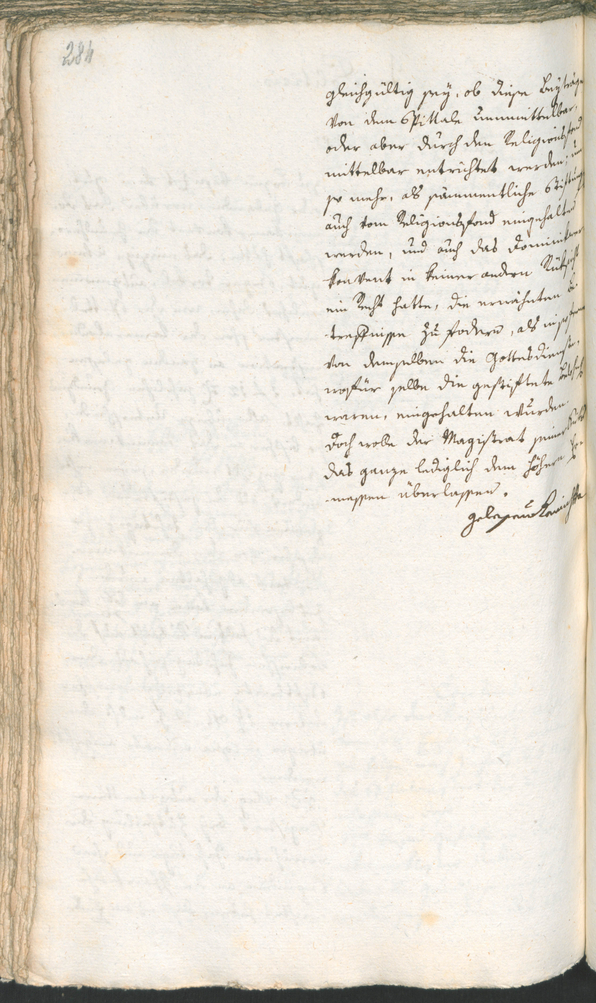 284
gleichgültig sey, ob diese Beyträge
von dem Spittale unmittelbar,
oder aber durch den Religionsfond
mittelbar entrichtet werden; um
so mehr, als sämmentliche Stiftung
auch vom Religionsfond eingehalten
werden, und auch das Dominikaner
konvent in keiner andern Rücksicht
ein Recht hatte, die erwähnten
treffnisse zu fodern, als insofern
von demselben die Gottesdienste,
wofür selbe die gestiftete
waren, eingehalten wurden.
Doch wolle der Magistrat seiner Seits
das ganze lediglich dem höhern Er=
messen überlassen.